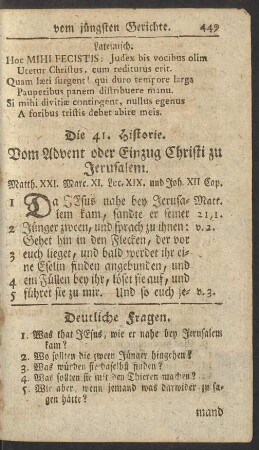 vom jüngsten Gerichte. 449
Lateinisch.
Hoc MIHI FECISTIS: Judex bis vocibus olim
Utetur Christus, cum rediturus erit.
Quam læti surgent! qui duro tempore larga
Pauperibus panem distribuere manu.
Si mihi divitiæ contingent, nullus egenus
A foribus tristis debet abire meis.
Die 41. Historie.
Vom Advent oder Einzug Christi zu
Jerusalem.
Matth. XXI. Marc. XI. Luc. XIX. und Joh. XII Cap.
1 Da JEsus nahe bey Jerusa- Matt.
lem kam, sandte er seiner 21,1.
2 Jünger zween, und sprach zu ihnen: v. 2.
Gehet hin in den Flecken, der vor
3 euch lieget, und bald werdet ihr ei-
ne Eselin finden angebunden, und
4 ein Füllen bey ihr, löset sie auf, und
5 führet sie zu mir. Und so euch je- v. 3.
Deutliche Fragen.
1. Was that JEsus, wie er nahe bey Jerusalem
kam?
2. Wo sollten die zween Jünger hingehen?
3. Was würden sie daselbst finden?
4. Was sollten sie mit den Thieren machen?
5. Wie aber, wenn jemand was darwider zu sa-
gen hätte?
mand